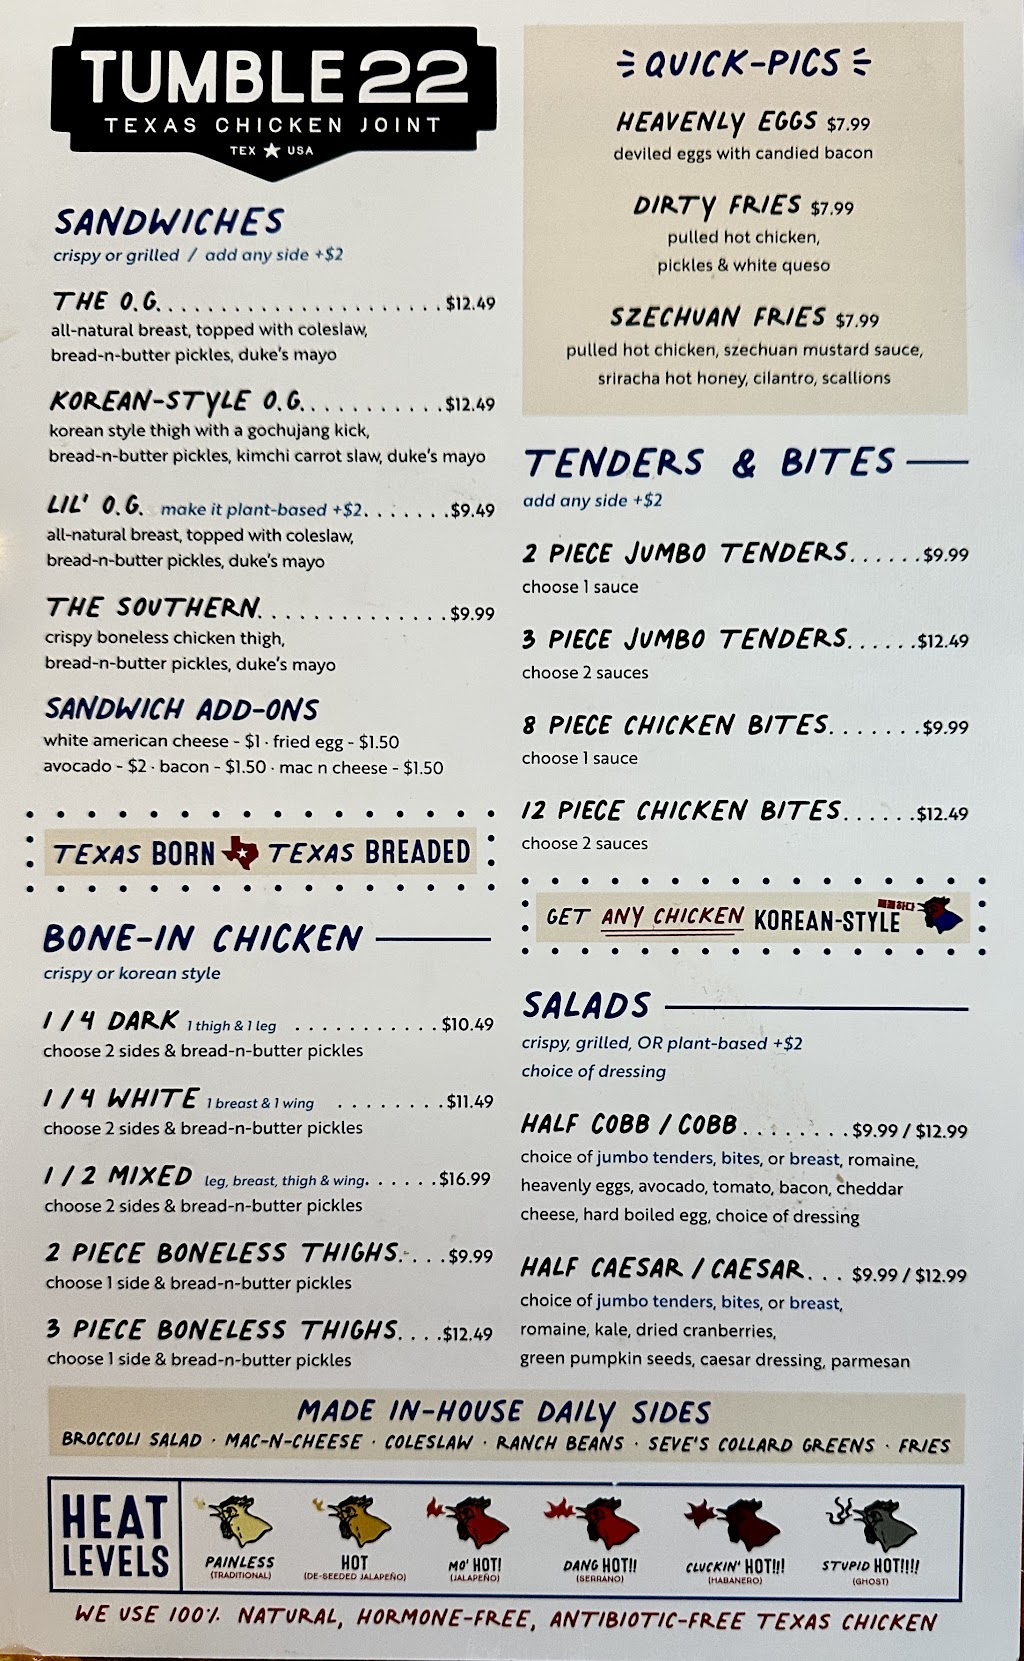 TUMBLE 22
TEXAS CHICKEN JOINT
TEX ★ USA
SANDWICHES
crispy or grilled / add any side +$2
THE O.G. . . . . . . . . . . . . . . . . . . . . . . . $12.49
all-natural breast, topped with coleslaw,
bread-n-butter pickles, duke's mayo
KOREAN-STYLE O.G. . . . . . . . . . . $12.49
korean style thigh with a gochujang kick,
bread-n-butter pickles, kimchi carrot slaw, duke's mayo
LIL' O.G. make it plant-based +$2. . . . . . . $9.49
all-natural breast, topped with coleslaw,
bread-n-butter pickles, duke's mayo
THE SOUTHERN. . . . . . . . . . . . . . . $9.99
crispy boneless chicken thigh,
bread-n-butter pickles, duke's mayo
SANDWICH ADD-ONS
white american cheese - $1 · fried egg - $1.50
avocado - $2 · bacon - $1.50 · mac n cheese - $1.50
TEXAS BORN TEXAS BREADED
BONE-IN CHICKEN
crispy or korean style
1/4 DARK 1 thigh & 1 leg . . . . . . . . . . . $10.49
choose 2 sides & bread-n-butter pickles
1/4 WHITE 1 breast & 1 wing . . . . . . . . $11.49
choose 2 sides & bread-n-butter pickles
1/2 MIXED leg, breast, thigh & wing. . . . . . $16.99
choose 2 sides & bread-n-butter pickles
2 PIECE BONELESS THIGHS. . . . $9.99
choose 1 side & bread-n-butter pickles
3 PIECE BONELESS THIGHS. . . . $12.49
choose 1 side & bread-n-butter pickles
QUICK-PICS
HEAVENLY EGGS $7.99
deviled eggs with candied bacon
DIRTY FRIES $7.99
pulled hot chicken,
pickles & white queso
SZECHUAN FRIES $7.99
pulled hot chicken, szechuan mustard sauce,
sriracha hot honey, cilantro, scallions
TENDERS & BITES
add any side +$2
2 PIECE JUMBO TENDERS. . . . . . $9.99
choose 1 sauce
3 PIECE JUMBO TENDERS. . . . . . $12.49
choose 2 sauces
8 PIECE CHICKEN BITES. . . . . . . $9.99
choose 1 sauce
12 PIECE CHICKEN BITES. . . . . . $12.49
choose 2 sauces
GET ANY CHICKEN KOREAN-STYLE
SALADS
crispy, grilled, OR plant-based +$2
choice of dressing
HALF COBB / COBB . . . . . . . . $9.99 / $12.99
choice of jumbo tenders, bites, or breast, romaine,
heavenly eggs, avocado, tomato, bacon, cheddar
cheese, hard boiled egg, choice of dressing
HALF CAESAR / CAESAR. . . $9.99 / $12.99
choice of jumbo tenders, bites, or breast,
romaine, kale, dried cranberries,
green pumpkin seeds, caesar dressing, parmesan
MADE IN-HOUSE DAILY SIDES
BROCCOLI SALAD · MAC-N-CHEESE · COLESLAW · RANCH BEANS · SEVE'S COLLARD GREENS · FRIES
HEAT
LEVELS
PAINLESS
(TRADITIONAL)
HOT
(DE-SEEDED JALAPEÑO)
MO' HOT!
(JALAPEÑO)
DANG HOT!!
(SERRANO)
CLUCKIN' HOT!!!
(HABANERO)
STUPID HOT!!!!
(GHOST)
WE USE 100% NATURAL, HORMONE-FREE, ANTIBIOTIC-FREE TEXAS CHICKEN